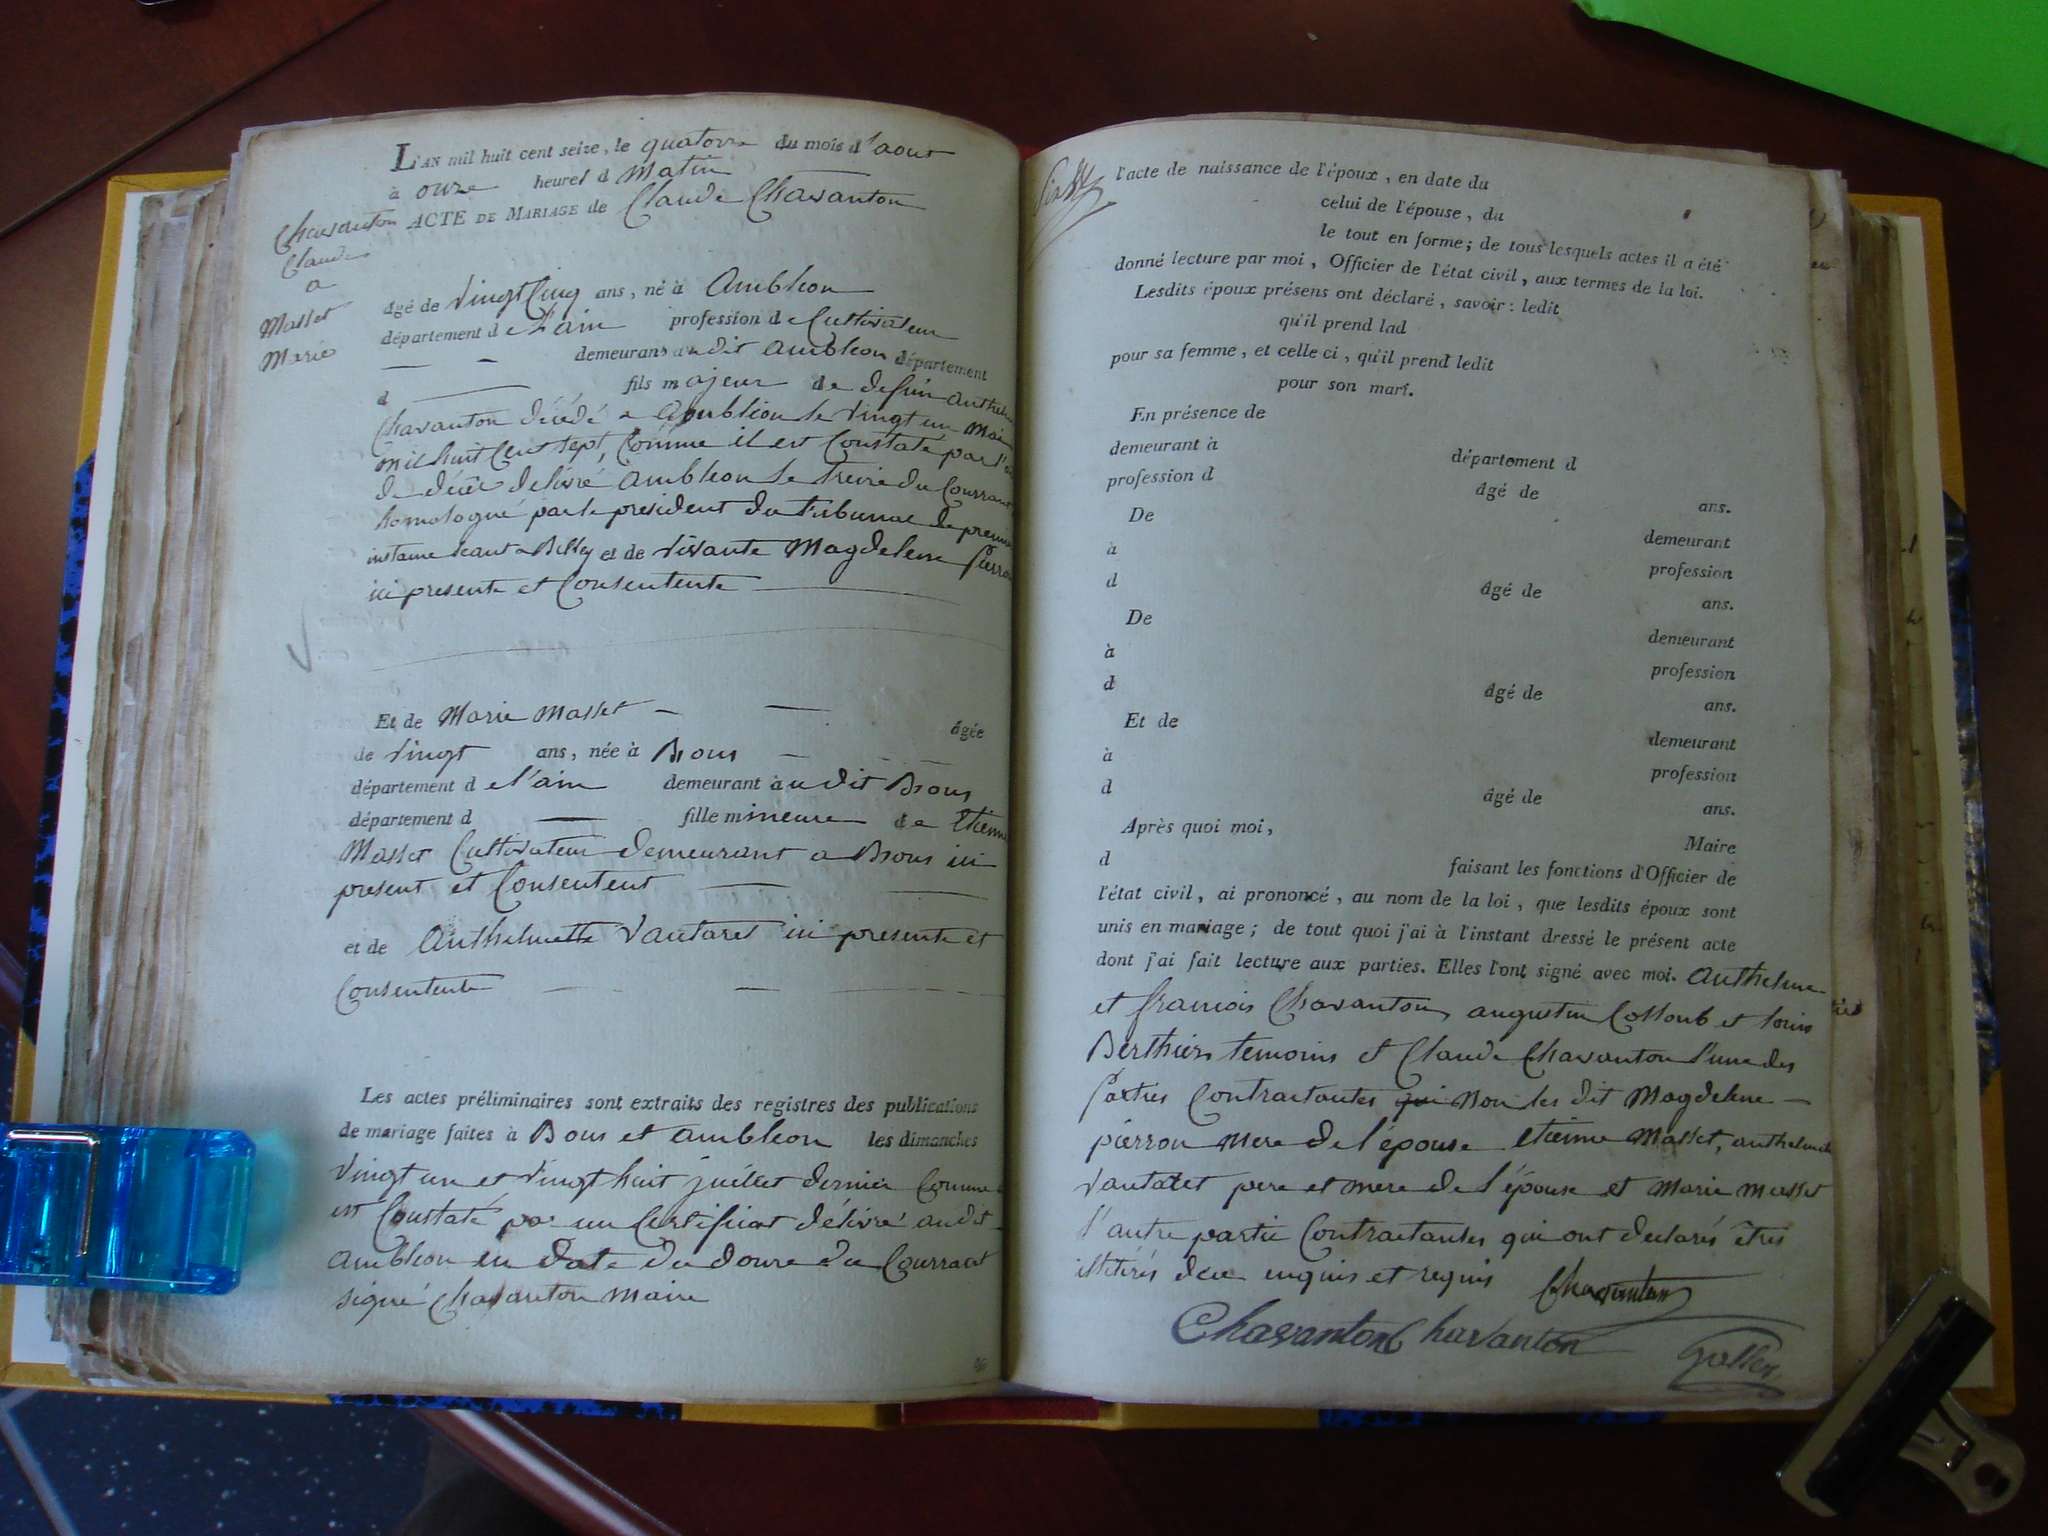 L'AN mil huit cent seize, le quatorze du mois d'aout
à onze heures d matin
ACTE DE MARIAGE de Claude Chavanton
Chavanton
Claude
a
Masset
Marie
âgé de vingt cinq ans, né à Ambleon
département de l'ain profession de Cultivateur
demeurans audit Ambleon département
d fils majeur de defun Anthelme
Chavanton décédé a Ambleon le vingt un Mai
mil huit Cent sept, Comme il est Constaté par l'
de décès délivré Ambleon le treize du Courrant
homologué par le president du tribunal de premier
instame seant a Belley et de vivante Magdelene pierron
ici presente et Consentente
Et de Marie Masset âgée
de vingt ans, née à Bons
département de l'ain demeurant audit Bons
département d fille mineure de Etienne
Masset Cultivateur demeurant a Bons ici
present et Consentent
et de Anthelmette Vautaret ici presente et
Consentente
Les actes préliminaires sont extraits des registres des publications
de mariage faites à Bons et Ambleon les dimanches
vingt un et vingt huit juillet dernier Comme
est Constaté par un Certificat délivré audit
Ambleon en date du douze du Courrant
signé Chavanton Maire
l'acte de naissance de l'époux, en date du
celui de l'épouse, du
le tout en forme; de tous lesquels actes il a été
donné lecture par moi, Officier de l'état civil, aux termes de la loi.
Lesdits époux présens ont déclaré, savoir: ledit
qu'il prend lad
pour sa femme, et celle ci, qu'il prend ledit
pour son mari.
En présence de
demeurant à département d
profession d âgé de ans.
De demeurant
à profession
d âgé de ans.
De demeurant
à profession
d âgé de ans.
Et de demeurant
à profession
d âgé de ans.
Après quoi moi, Maire
d faisant les fonctions d'Officier de
l'état civil, ai prononcé, au nom de la loi, que lesdits époux sont
unis en mariage; de tout quoi j'ai à l'instant dressé le présent acte
dont j'ai fait lecture aux parties. Elles l'ont signé avec moi. Anthelme
et francois Chavanton, augustin Collomb et
Berthier temoins et Claude Chavanton l'une des
parties Contractantes qui Non les dit Magdelene
pierron mere de l'épouse Etienne Masset, anthelmette
Vautaret pere et mere de l'épouse et Marie Masset
l'autre partie Contractantes qui ont declarés êtres
illitérés de ce enquis et requis Chavanton
Chavanton Chavanton